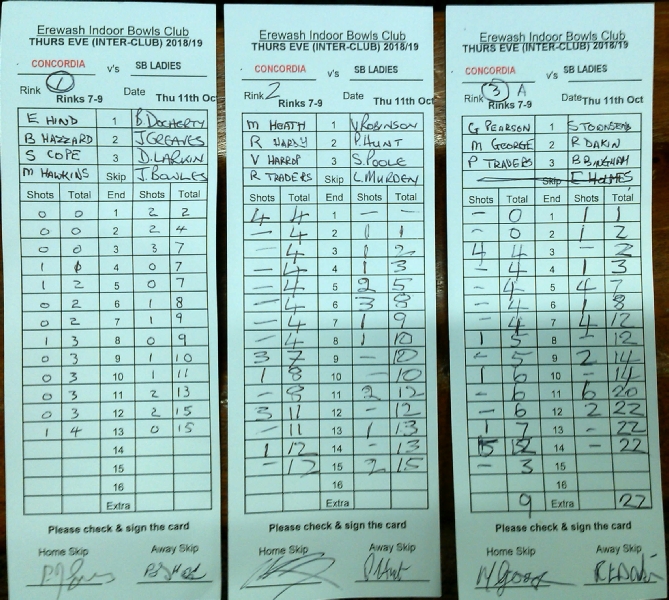 Erewash Indoor Bowls Club
THURS EVE (INTER-CLUB) 2018/19
CONCORDIA v's SB LADIES
Rink 1 Rinks 7-9 Date Thu 11th Oct
E HIND 1 B DOCHERTY
B HAZZARD 2 J GREAVES
S COPE 3 D. LARKIN
M HAWKINS Skip J. BOWLES
Shots Total End Shots Total
0 0 1 2 2
0 0 2 2 4
0 0 3 3 7
1 1 4 0 7
1 2 5 0 7
0 2 6 1 8
0 2 7 1 9
1 3 8 0 9
0 3 9 1 10
0 3 10 1 11
0 3 11 2 13
0 3 12 2 15
1 4 13 0 15
14
15
16
Extra
Please check & sign the card
Home Skip Away Skip
Erewash Indoor Bowls Club
THURS EVE (INTER-CLUB) 2018/19
CONCORDIA v's SB LADIES
Rink 2 Rinks 7-9 Date Thu 11th Oct
M HEATH 1 V ROBINSON
R HARDY 2 P HUNT
V HARROP 3 S. POOLE
R TRADERS Skip L MURDEN
Shots Total End Shots Total
4 4 1 - -
- 4 2 1 1
- 4 3 1 2
- 4 4 1 3
- 4 5 2 5
- 4 6 3 8
- 4 7 1 9
- 4 8 1 10
3 7 9 - 10
1 8 10 - 10
- 8 11 2 12
3 11 12 - 12
- 11 13 1 13
1 12 14 - 13
- 12 15 2 15
16
Extra
Please check & sign the card
Home Skip Away Skip
P Hunt
Erewash Indoor Bowls Club
THURS EVE (INTER-CLUB) 2018/19
CONCORDIA v's SB LADIES
Rink 3 A Rinks 7-9 Date Thu 11th Oct
G PEARSON 1 S
M GEORGE 2 R DAKIN
P TRADERS 3 B BINGHAM
Skip E HOLMES
Shots Total End Shots Total
- 0 1 1 1
- 0 2 1 2
4 4 3 - 2
- 4 4 1 3
- 4 5 4 7
- 4 6 1 8
- 4 7 4 12
1 5 8 - 12
- 5 9 2 14
1 6 10 - 14
- 6 11 6 20
- 6 12 2 22
1 7 13 - 22
5 12 14 - 22
- 3 15
16
9 Extra 22
Please check & sign the card
Home Skip Away Skip